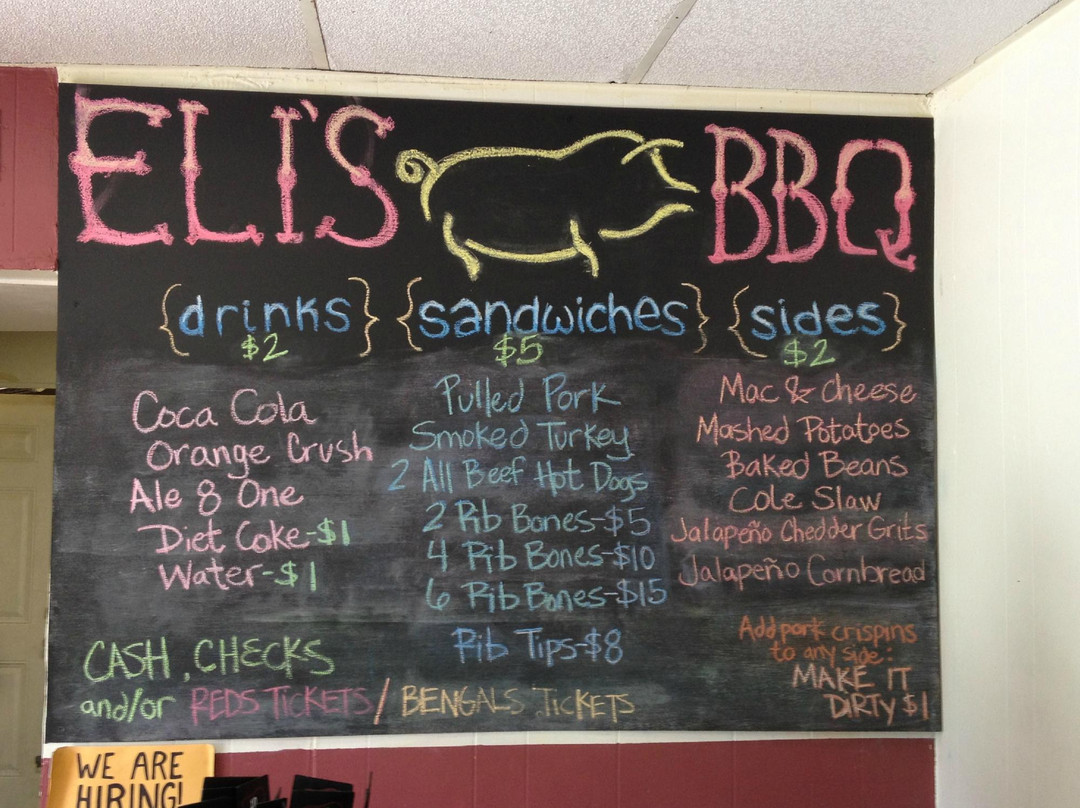 ELI'S BBQ
{drinks}
$2
Coca Cola
Orange Crush
Ale 8 One
Diet Coke-$1
Water-$1
{sandwiches}
$5
Pulled Pork
Smoked Turkey
2 All Beef Hot Dogs
2 Rib Bones-$5
4 Rib Bones-$10
6 Rib Bones-$15
Rib Tips-$8
{sides}
$2
Mac & Cheese
Mashed Potatoes
Baked Beans
Cole Slaw
Jalapeño Chedder Grits
Jalapeño Cornbread
Add pork crispins
to any side:
MAKE IT
DIRTY $1
CASH, CHECKS
and/or REDS TICKETS/ BENGALS TICKETS
WE ARE
HIRING!